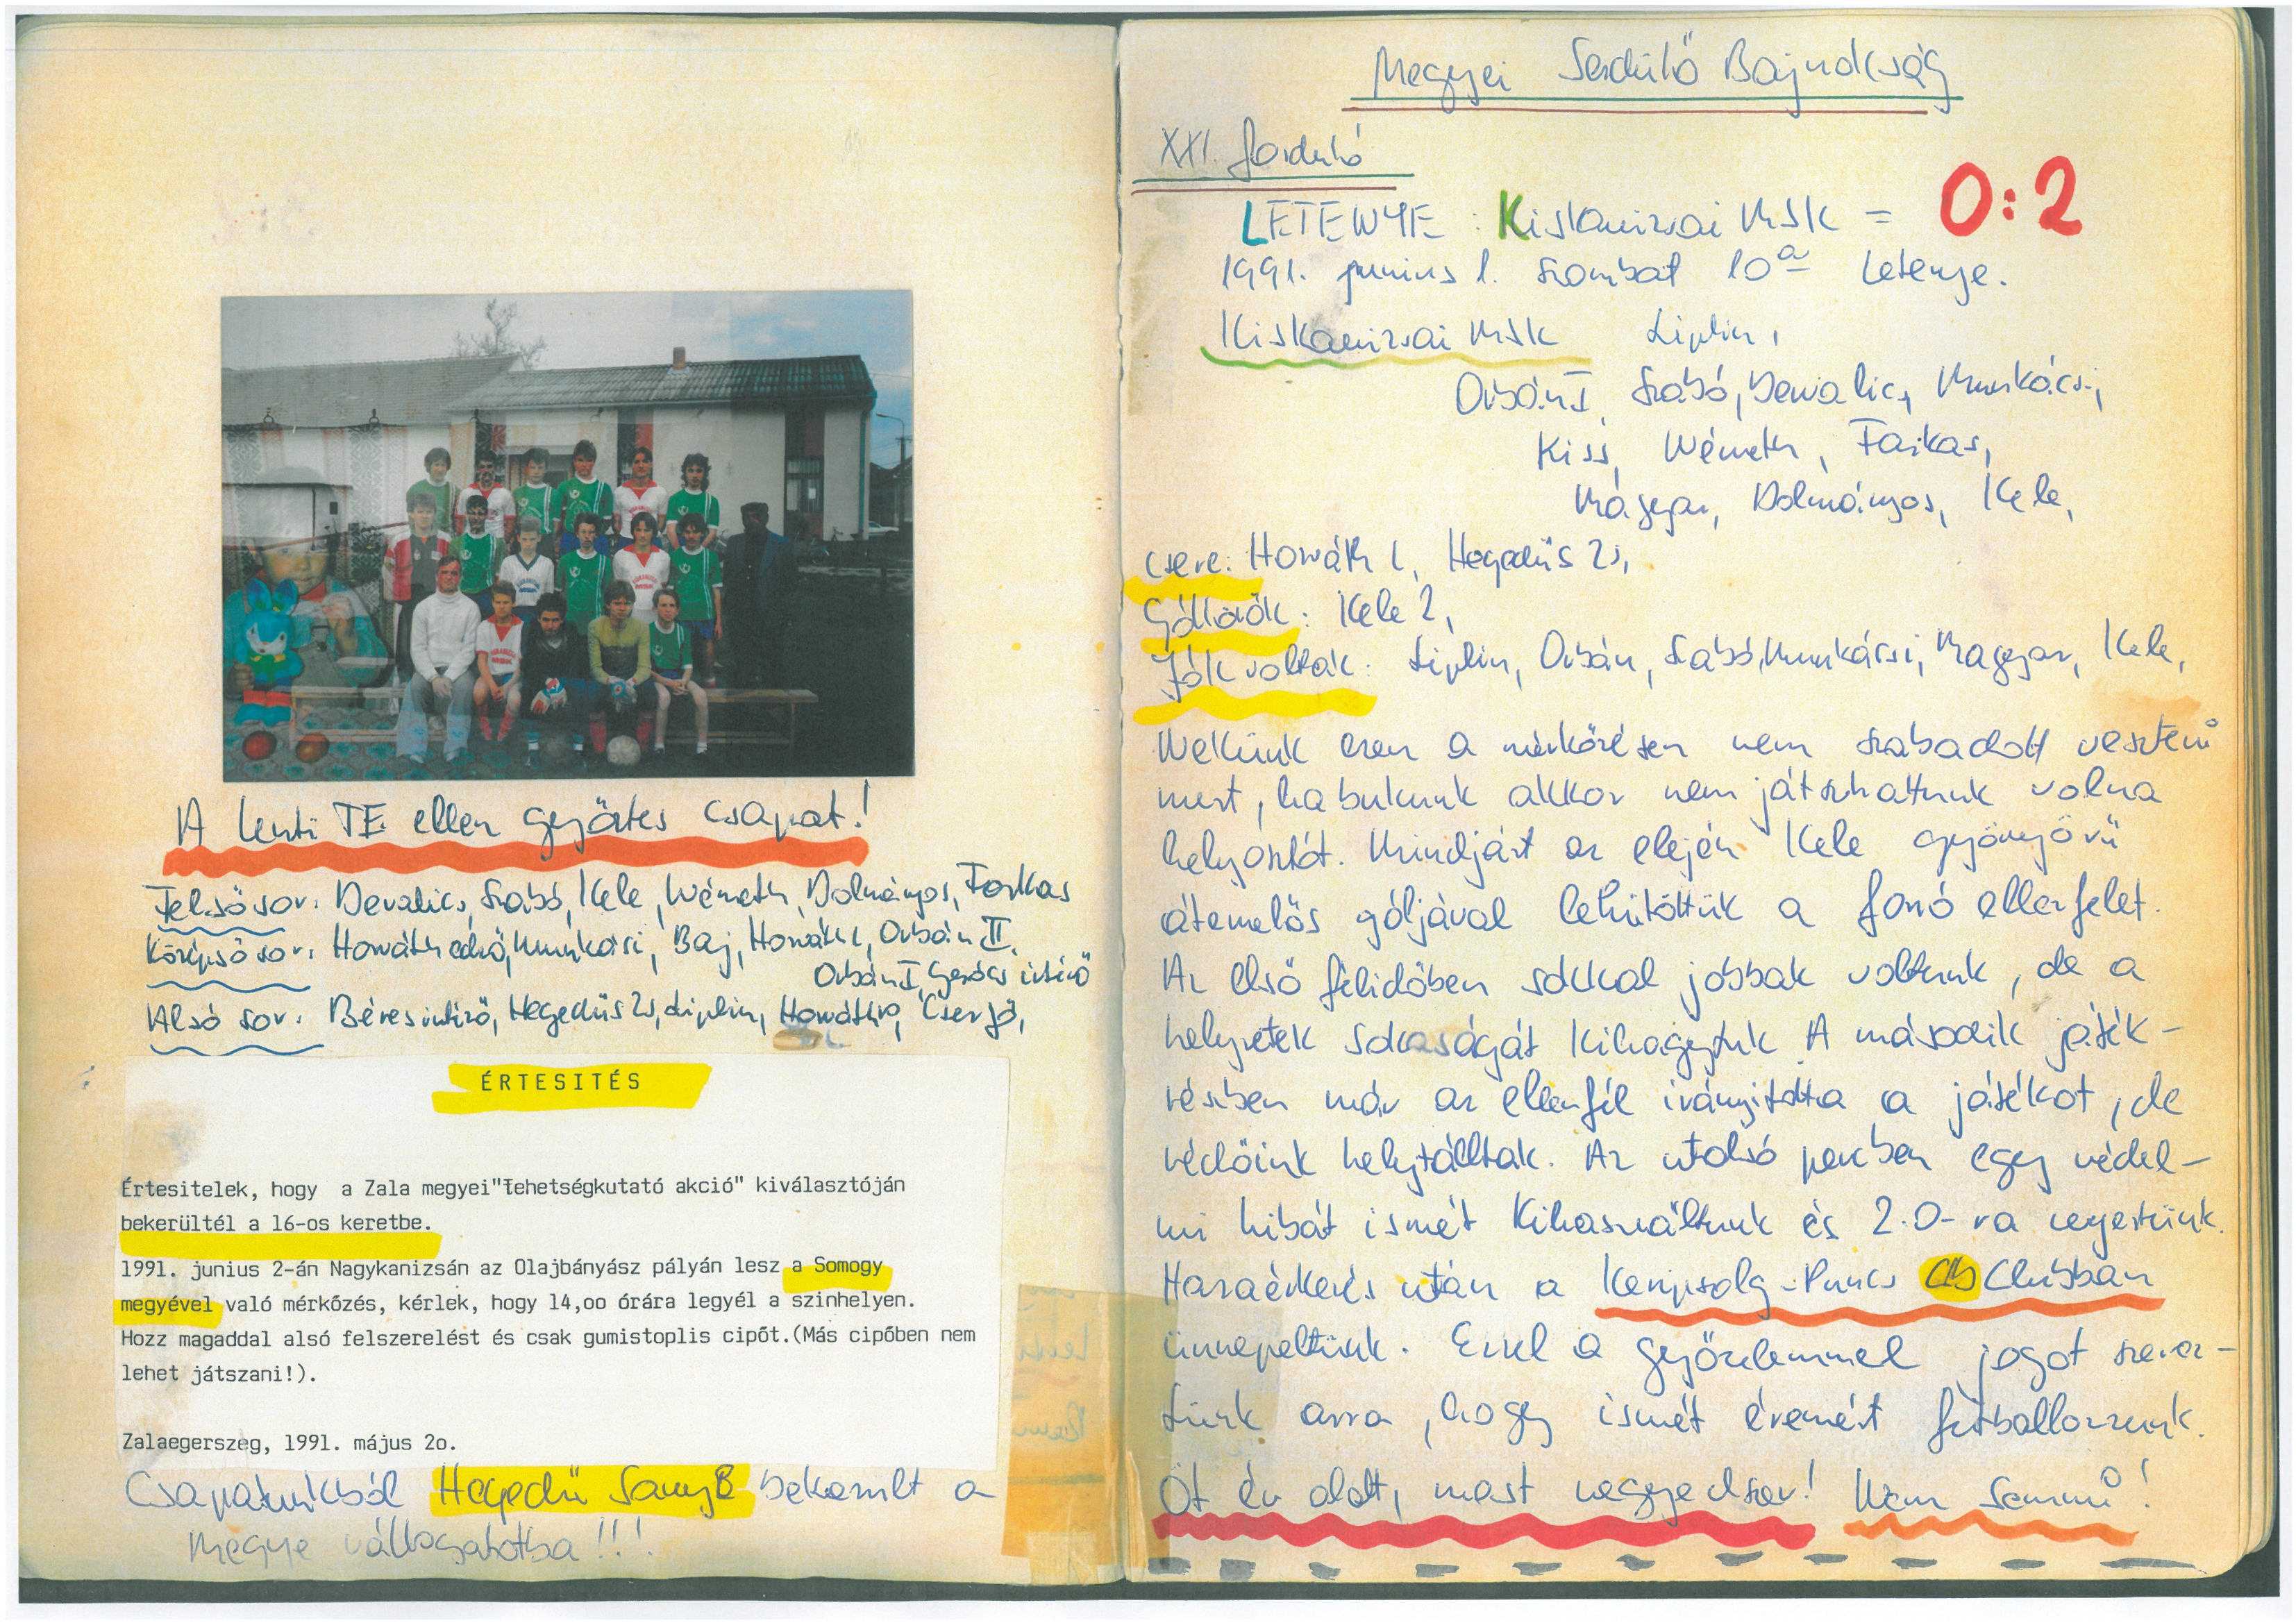 A lenti TE ellen győztes csapat!
Felső sor: Devalics, Szabó, Kele, Németh, Dolmányos, Farkas
Középső sor: Horváth edző, Munkácsi, Baj, Horváth I, Orbán II,
Orbán I, Gerócs intéző
Alsó sor: Béres intéző, Hegedüs Zs, Liplin, Horváth, Cserjó,
ÉRTESITÉS
Értesitelek, hogy a Zala megyei"Tehetségkutató akció" kiválasztóján
bekerültél a 16-os keretbe.
1991. junius 2-án Nagykanizsán az Olajbányász pályán lesz a Somogy
megyével való mérkőzés, kérlek, hogy 14,oo órára legyél a szinhelyen.
Hozz magaddal alsó felszerelést és csak gumistoplis cipőt.(Más cipőben nem
lehet játszani!).
Zalaegerszeg, 1991. május 2o.
Csapatunkból Hegedü bekerült a
megye válogatotba!!!
Megyei Serdülő Bajnokság
XXI. forduló
LETENYE : Kiskanizsai MSK = 0:2
1991. junius 1. szombat 10 Letenye.
Kiskanizsai MSK Liplin,
Orbán I, Szabó, Devalics, Munkácsi,
Kiss, Németh, Farkas,
Magyar, Dolmányos, Kele,
Csere: Horváth I, Hegedüs Zs,
Góllövők: Kele 2,
Jók voltak: Liplin, Orbán, Szabó, Munkácsi, Magyar, Kele,
Nekünk ezen a mérkőzésen nem szabadott veszteni
mert, ha bukunk akkor nem játszhattunk volna
helyosztót. Mindjárt az elején Kele gyönyörű
átemelős góljával lehütöttük a forró ellenfelet.
Az első félidőben sokkal jobbak voltunk, de a
helyzetek sokaságát kihagytuk. A második játék-
részben már az ellenfél irányitotta a játékot, de
védőink helytálltak. Az utolsó percben egy védel-
mi hibát ismét kihasználtunk és 2:0-ra nyertünk.
Hazaérkezés után a Clubban
ünnepeltünk. Ezzel a győzelemmel jogot szerez-
tünk arra, hogy ismét éremért futballozzunk.
Öt év alatt, most negyedszer! Nem semmi!